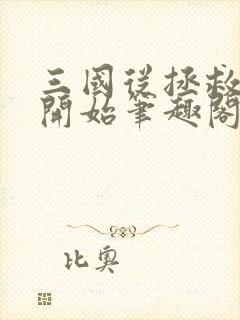 三國從拯救
開始筆趣閣
比奧